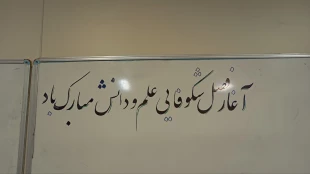 آغاز فصل شکوفایی علم و دانش مبارک باد